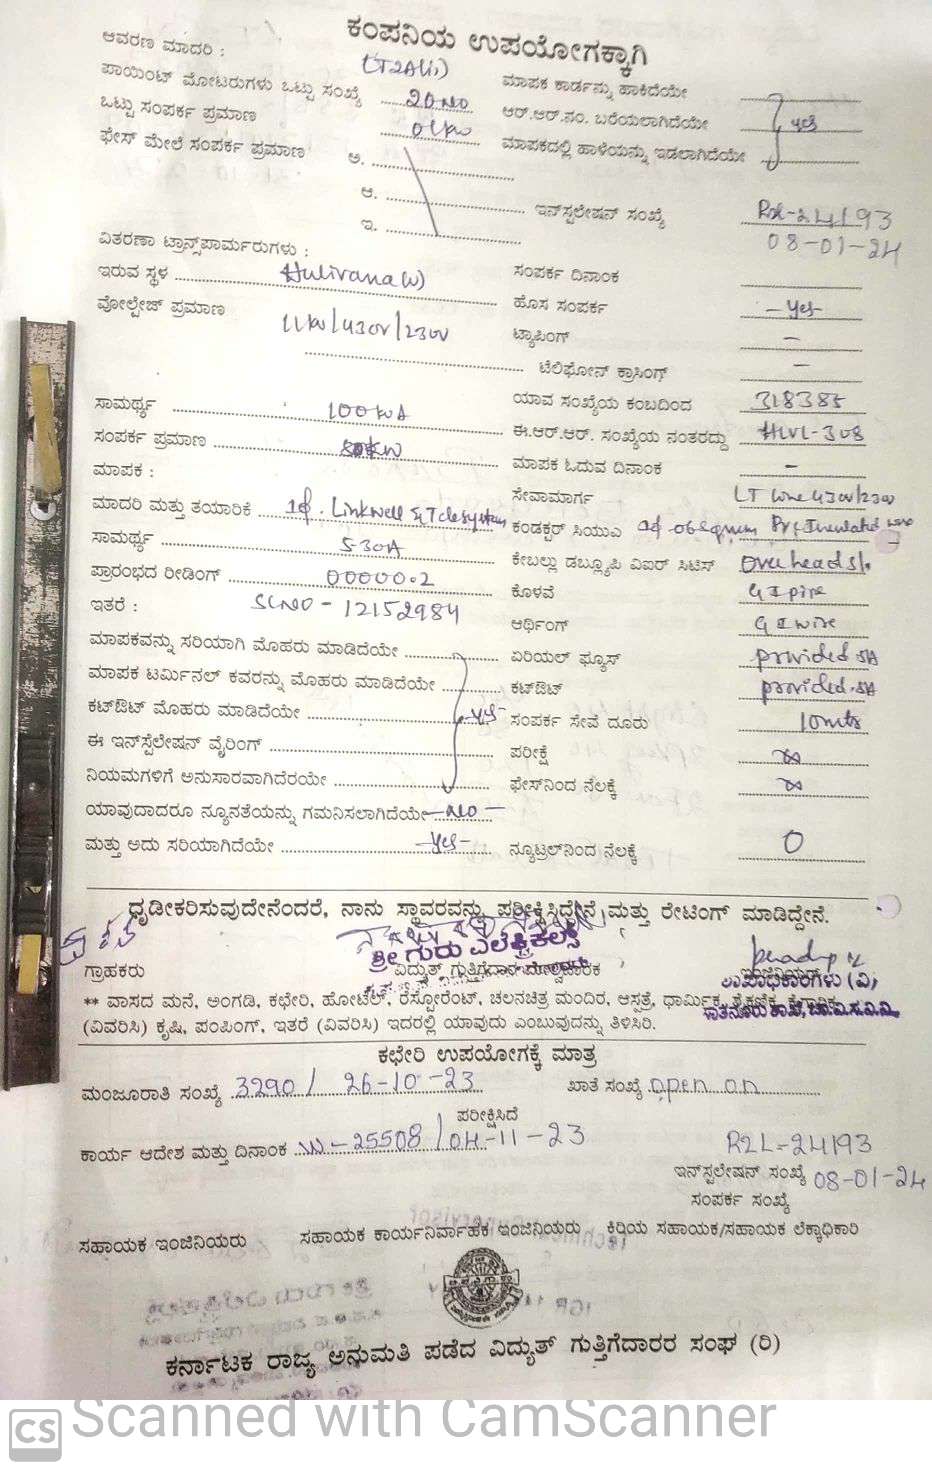 ಕಂಪನಿಯ ಉಪಯೋಗಕ್ಕಾಗಿ
ಆವರಣ ಮಾದರಿ : (LT2A(ii)) ಮಾಪಕ ಕಾರ್ಡನ್ನು ಹಾಕಿದೆಯೇ
ಪಾಯಿಂಟ್ ಮೋಟರುಗಳು ಒಟ್ಟು ಸಂಖ್ಯೆ 20 NO ಆರ್.ಆರ್.ನಂ. ಬರೆಯಲಾಗಿದೆಯೇ yes
ಒಟ್ಟು ಸಂಪರ್ಕ ಪ್ರಮಾಣ 01kw ಮಾಪಕದಲ್ಲಿ ಹಾಳೆಯನ್ನು ಇಡಲಾಗಿದೆಯೇ
ಫೇಸ್ ಮೇಲೆ ಸಂಪರ್ಕ ಪ್ರಮಾಣ ಅ.
ಆ. ಇನ್‌ಸ್ಟಲೇಷನ್ ಸಂಖ್ಯೆ R2L-24193
ಇ. 08-01-24
ವಿತರಣಾ ಟ್ರಾನ್ಸ್‌ಫಾರ್ಮರುಗಳು :
ಇರುವ ಸ್ಥಳ Hulivana (V) ಸಂಪರ್ಕ ದಿನಾಂಕ
ವೋಲ್ಟೇಜ್ ಪ್ರಮಾಣ 11kv/430v/230v ಹೊಸ ಸಂಪರ್ಕ -yes-
ಟ್ಯಾಪಿಂಗ್ -
ಟೆಲಿಫೋನ್ ಕ್ರಾಸಿಂಗ್ -
ಸಾಮರ್ಥ್ಯ 100 kVA ಯಾವ ಸಂಖ್ಯೆಯ ಕಂಬದಿಂದ 318385
ಸಂಪರ್ಕ ಪ್ರಮಾಣ 80kw ಈ.ಆರ್.ಆರ್. ಸಂಖ್ಯೆಯ ನಂತರದ್ದು HLVL-308
ಮಾಪಕ : ಮಾಪಕ ಓದುವ ದಿನಾಂಕ -
ಮಾದರಿ ಮತ್ತು ತಯಾರಿಕೆ 1ϕ. Linkwell Telesystem ಸೇವಾಮಾರ್ಗ LT line 430v/230v
ಸಾಮರ್ಥ್ಯ 5-30A ಕಂಡಕ್ಟರ್ ಸಿಯುಎ 1ϕ 06sqmm PVC Insulated wire
ಪ್ರಾರಂಭದ ರೀಡಿಂಗ್ 00000.2 ಕೇಬಲ್ಲು ಡಬ್ಲ್ಯೂಪಿ ವಿಐರ್ ಸಿಟಿಸ್ Overhead s/.
ಇತರೆ : Sl.NO - 12152984 ಕೊಳವೆ GI pipe
ಆರ್ಥಿಂಗ್ GI wire
ಮಾಪಕವನ್ನು ಸರಿಯಾಗಿ ಮೊಹರು ಮಾಡಿದೆಯೇ ಏರಿಯಲ್ ಫ್ಯೂಸ್ provided 5A
ಮಾಪಕ ಟರ್ಮಿನಲ್ ಕವರನ್ನು ಮೊಹರು ಮಾಡಿದೆಯೇ ಕಟ್‌ಔಟ್ provided 5A
ಕಟ್‌ಔಟ್ ಮೊಹರು ಮಾಡಿದೆಯೇ -yes- ಸಂಪರ್ಕ ಸೇವೆ ದೂರು 10mts
ಈ ಇನ್‌ಸ್ಟೆಲೇಷನ್ ವೈರಿಂಗ್ ಪರೀಕ್ಷೆ ∞
ನಿಯಮಗಳಿಗೆ ಅನುಸಾರವಾಗಿದೆರಯೇ ಫೇಸ್‌ನಿಂದ ನೆಲಕ್ಕೆ ∞
ಯಾವುದಾದರೂ ನ್ಯೂನತೆಯನ್ನು ಗಮನಿಸಲಾಗಿದೆಯೇ -NO-
ಮತ್ತು ಅದು ಸರಿಯಾಗಿದೆಯೇ -yes- ನ್ಯೂಟ್ರಲ್‌ನಿಂದ ನೆಲಕ್ಕೆ 0
ಧೃಡೀಕರಿಸುವುದೇನೆಂದರೆ, ನಾನು ಸ್ಥಾವರವನ್ನು ಪರೀಕ್ಷಿಸಿದ್ದೇನೆ ಮತ್ತು ರೇಟಿಂಗ್ ಮಾಡಿದ್ದೇನೆ.
ಶ್ರೀ ಗುರು ಎಲೆಕ್ಟ್ರಿಕಲ್ಸ್
ಗ್ರಾಹಕರು ವಿದ್ಯುತ್ ಗುತ್ತಿಗೆದಾರ ಇಂಜಿನಿಯರ್
** ವಾಸದ ಮನೆ, ಅಂಗಡಿ, ಕಛೇರಿ, ಹೋಟೆಲ್, ರೆಸ್ಟೋರೆಂಟ್, ಚಲನಚಿತ್ರ ಮಂದಿರ, ಆಸ್ಪತ್ರೆ, ಧಾರ್ಮಿಕ, ಶೈಕ್ಷಣಿಕ, ಕೈಗಾರಿಕ
(ವಿವರಿಸಿ) ಕೃಷಿ, ಪಂಪಿಂಗ್, ಇತರೆ (ವಿವರಿಸಿ) ಇದರಲ್ಲಿ ಯಾವುದು ಎಂಬುವುದನ್ನು ತಿಳಿಸಿರಿ.
ಕಛೇರಿ ಉಪಯೋಗಕ್ಕೆ ಮಾತ್ರ
ಮಂಜೂರಾತಿ ಸಂಖ್ಯೆ 3290/ 26-10-23 ಖಾತೆ ಸಂಖ್ಯೆ open on
ಪರೀಕ್ಷಿಸಿದೆ
ಕಾರ್ಯ ಆದೇಶ ಮತ್ತು ದಿನಾಂಕ W-25508/04-11-23 R2L-24193
ಇನ್‌ಸ್ಟಲೇಷನ್ ಸಂಖ್ಯೆ 08-01-24
ಸಂಪರ್ಕ ಸಂಖ್ಯೆ
ಸಹಾಯಕ ಇಂಜಿನಿಯರು ಸಹಾಯಕ ಕಾರ್ಯನಿರ್ವಾಹಕ ಇಂಜಿನಿಯರು ಕಿರಿಯ ಸಹಾಯಕ/ಸಹಾಯಕ ಲೆಕ್ಕಾಧಿಕಾರಿ
ಕರ್ನಾಟಕ ರಾಜ್ಯ ಅನುಮತಿ ಪಡೆದ ವಿದ್ಯುತ್ ಗುತ್ತಿಗೆದಾರರ ಸಂಘ (ರಿ)
CS Scanned with CamScanner